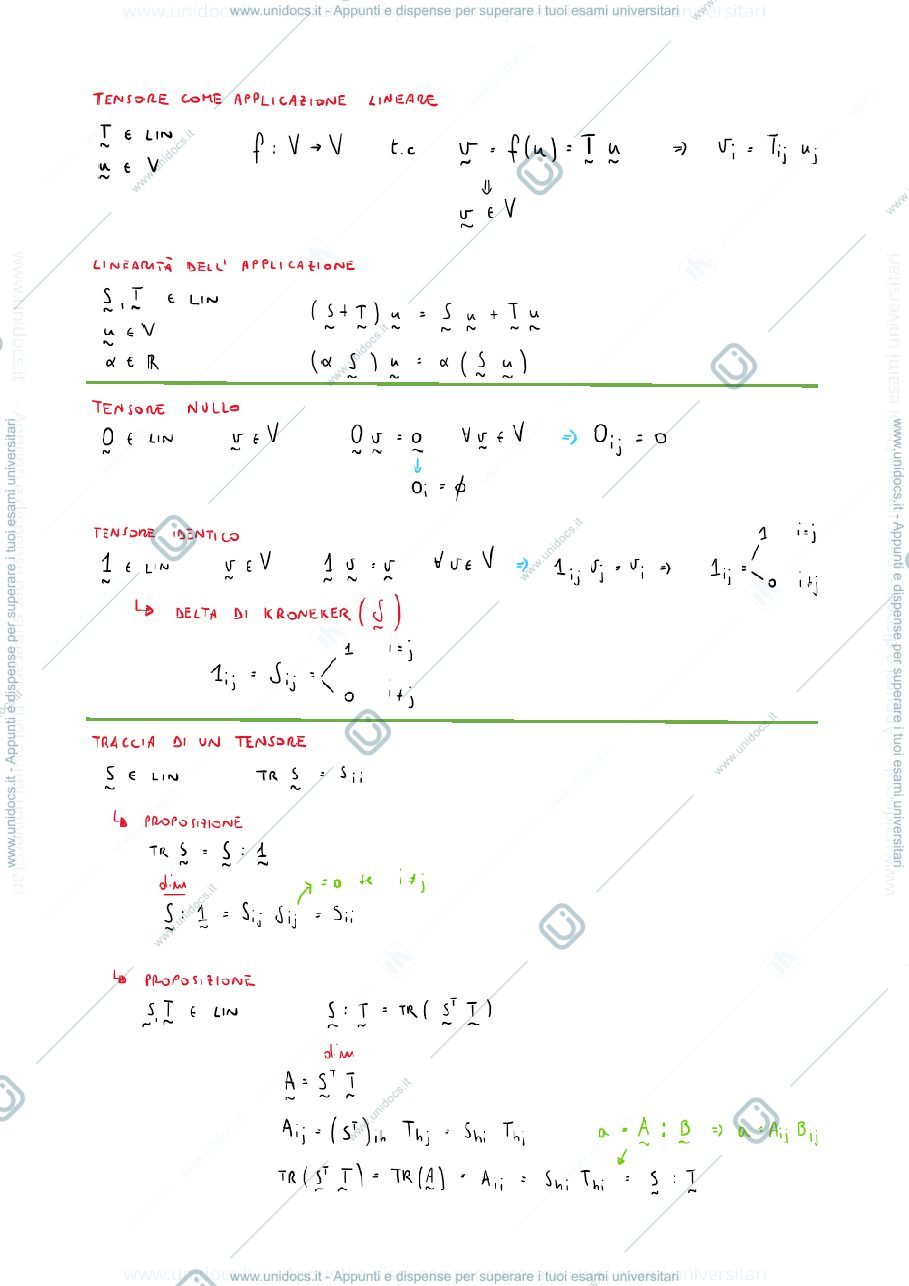 www.unidocs.it - Appunti e dispense per superare i tuoi esami universitari
TENSORE COME APPLICAZIONE LINEARE
T ∈ LIN f : V → V t.c v = f(u) = T u ⇒ vi = Tij uj
u ∈ V
⇓
v ∈ V
LINEARITÀ DELL' APPLICAZIONE
S, T ∈ LIN (S + T) u = S u + T u
u ∈ V
α ∈ R (α S) u = α (S u)
TENSORE NULLO
O ∈ LIN v ∈ V O v = o ∀ v ∈ V ⇒ Oij = 0
↓
oi = ϕ
TENSORE IDENTICO
1 ∈ LIN v ∈ V 1 v = v ∀ v ∈ V ⇒ 1ij vj = vi ⇒ 1ij = 1 i=j
0 i≠j
↳ DELTA DI KRONEKER (δ)
1ij = δij = 1 i=j
0 i≠j
TRACCIA DI UN TENSORE
S ∈ LIN TR S = Sii
↳ PROPOSIZIONE
TR S = S : 1
dim = 0 se i≠j
S : 1 = Sij δij = Sii
↳ PROPOSIZIONE
S, T ∈ LIN S : T = TR (Sᵀ T)
dim
A = Sᵀ T
Aij = (Sᵀ)ih Thj = Shi Thj a = A : B ⇒ a = Aij Bij
TR (Sᵀ T) = TR (A) = Aii = Shi Thi = S : T
www.unidocs.it - Appunti e dispense per superare i tuoi esami universitari